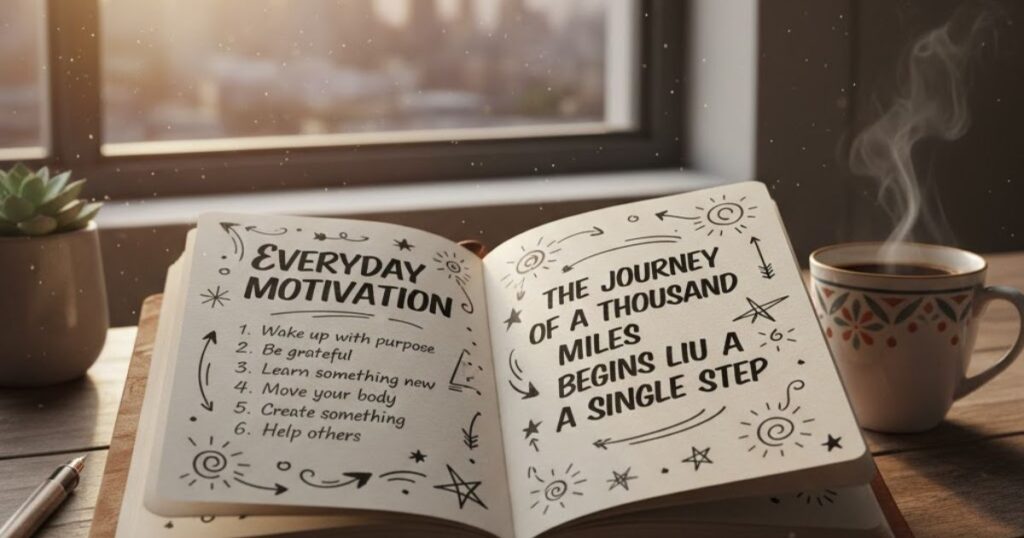 EVERYDAY
MOTIVATION
1. Wake up with purpose
2. Be grateful
3. Learn something new
4. Move your body
5. Create something
6. Help others
THE JOURNEY
OF A THOUSAND
MILES
BEGINS LIU A
A SINGLE STEP